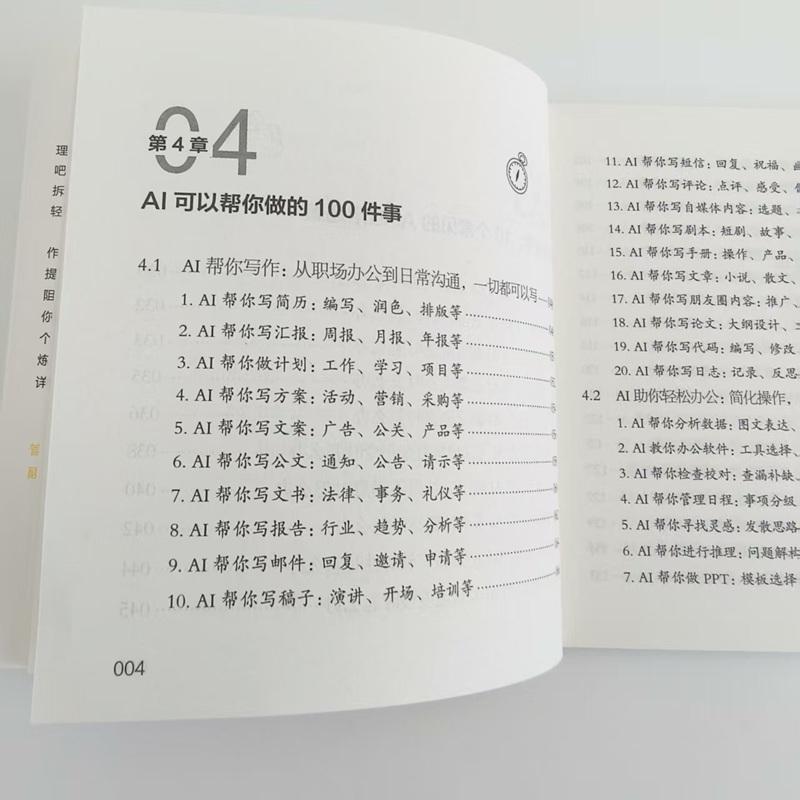 理
吧
拆
轻
作
提
阻
你
个
炼
详
04
第4章
AI 可以帮你做的 100 件事
4.1 AI 帮你写作：从职场办公到日常沟通，一切都可以写
1. AI 帮你写简历：编写、润色、排版等
2. AI 帮你写汇报：周报、月报、年报等
3. AI 帮你做计划：工作、学习、项目等
4. AI 帮你写方案：活动、营销、采购等
5. AI 帮你写文案：广告、公关、产品等
6. AI 帮你写公文：通知、公告、请示等
7. AI 帮你写文书：法律、事务、礼仪等
8. AI 帮你写报告：行业、趋势、分析等
9. AI 帮你写邮件：回复、邀请、申请等
10. AI 帮你写稿子：演讲、开场、培训等
004
11. AI 帮你写短信：回复、祝福、
12. AI 帮你写评论：点评、感受、
13. AI 帮你写自媒体内容：选题、
14. AI 帮你写剧本：短剧、故事、
15. AI 帮你写手册：操作、产品、
16. AI 帮你写文章：小说、散文、
17. AI 帮你写朋友圈内容：推广、
18. AI 帮你写论文：大纲设计、
19. AI 帮你写代码：编写、修改、
20. AI 帮你写日志：记录、反思
4.2 AI 助你轻松办公：简化操作，
1. AI 帮你分析数据：图文表达、
2. AI 教你办公软件：工具选择、
3. AI 帮你检查校对：查漏补缺、
4. AI 帮你管理日程：事项分级
5. AI 帮你寻找灵感：发散思路
6. AI 帮你进行推理：问题解构
7. AI 帮你做 PPT：模板选择